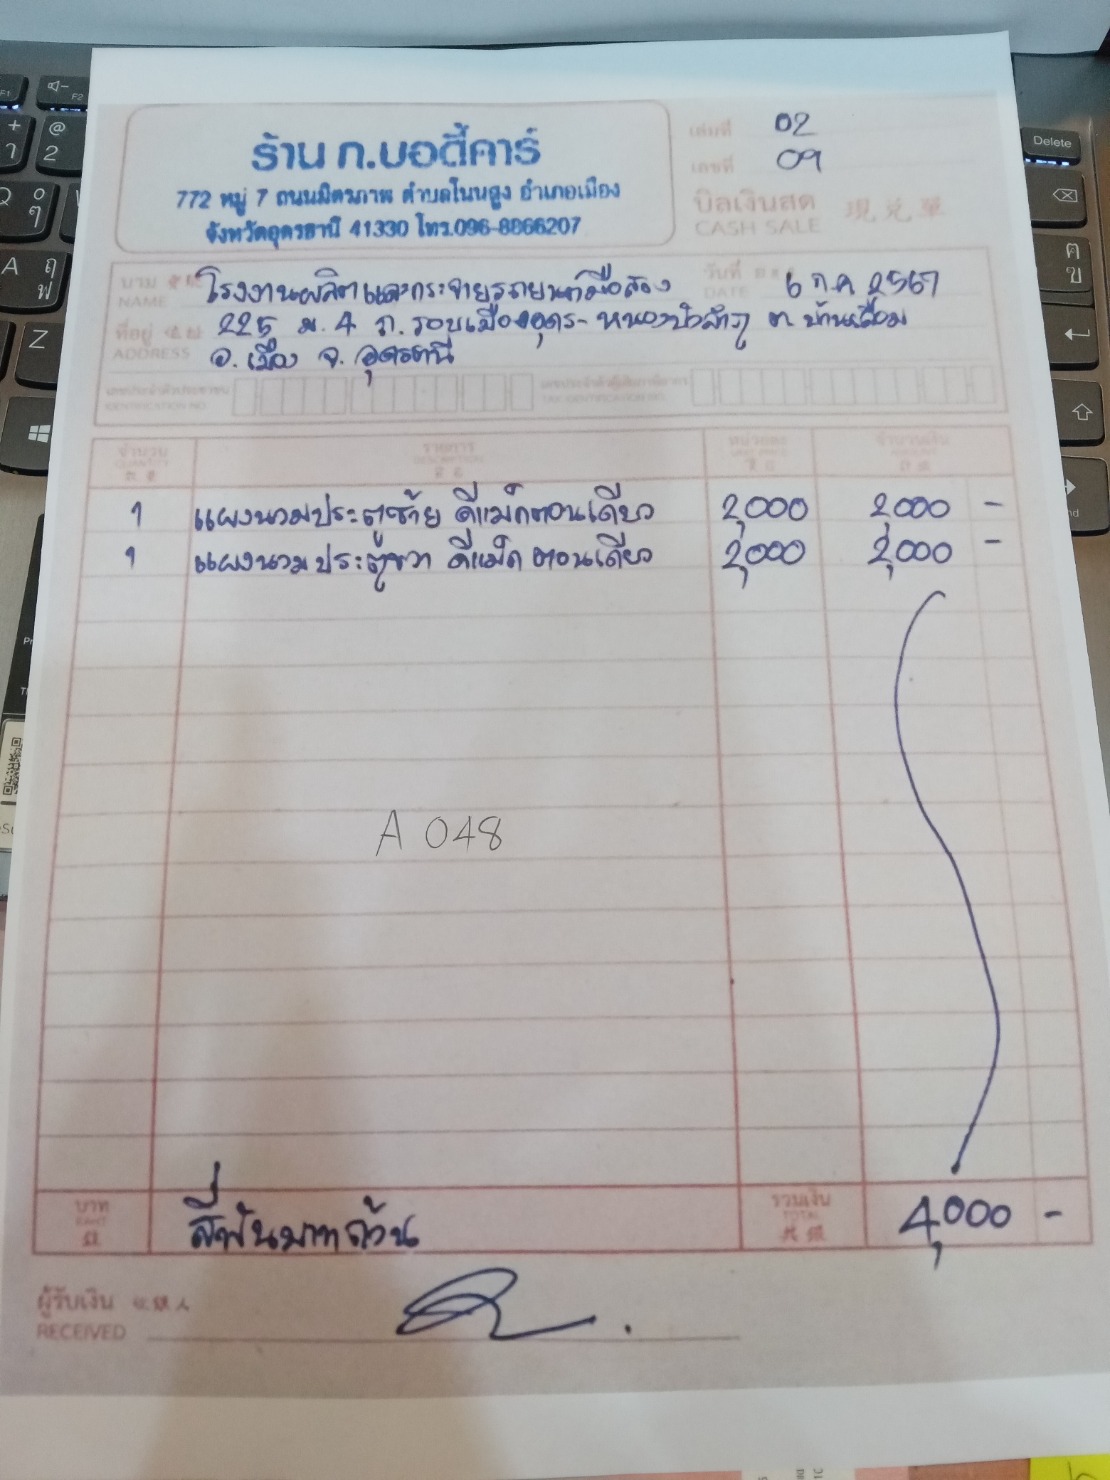 ร้าน ก.บอดี้คาร์
772 หมู่ 7 ถนนมิตรภาพ ตำบลโนนสูง อำเภอเมือง
จังหวัดอุดรธานี 41330 โทร.096-8866207
เล่มที่ 02
เลขที่ 09
บิลเงินสด 現兌單
CASH SALE
นาม โรงงานผลิตและกระจายรถยนต์มือสอง
NAME
วันที่ 6 ก.ค 2567
DATE
ที่อยู่ 225 ม.4 ถ.รอบเมืองอุดร-หนองบัวลำภู ต.บ้านเลื่อม
ADDRESS อ.เมือง จ.อุดรธานี
เลขประจำตัวประชาชน เลขประจำตัวผู้เสียภาษีอากร
IDENTIFICATION NO. TAX IDENTIFICATION NO.
จำนวน รายการ หน่วยละ จำนวนเงิน
QUANTITY DESCRIPTION UNIT PRICE AMOUNT
1 แผงนวมประตูซ้าย ดีแม็กตอนเดียว 2,000 2,000 -
1 แผงนวมประตูขวา ดีแม็ก ตอนเดียว 2,000 2,000 -
A 048
บาท สี่พันบาทถ้วน รวมเงิน 4,000 -
BAHT TOTAL
ผู้รับเงิน
RECEIVED
Delete